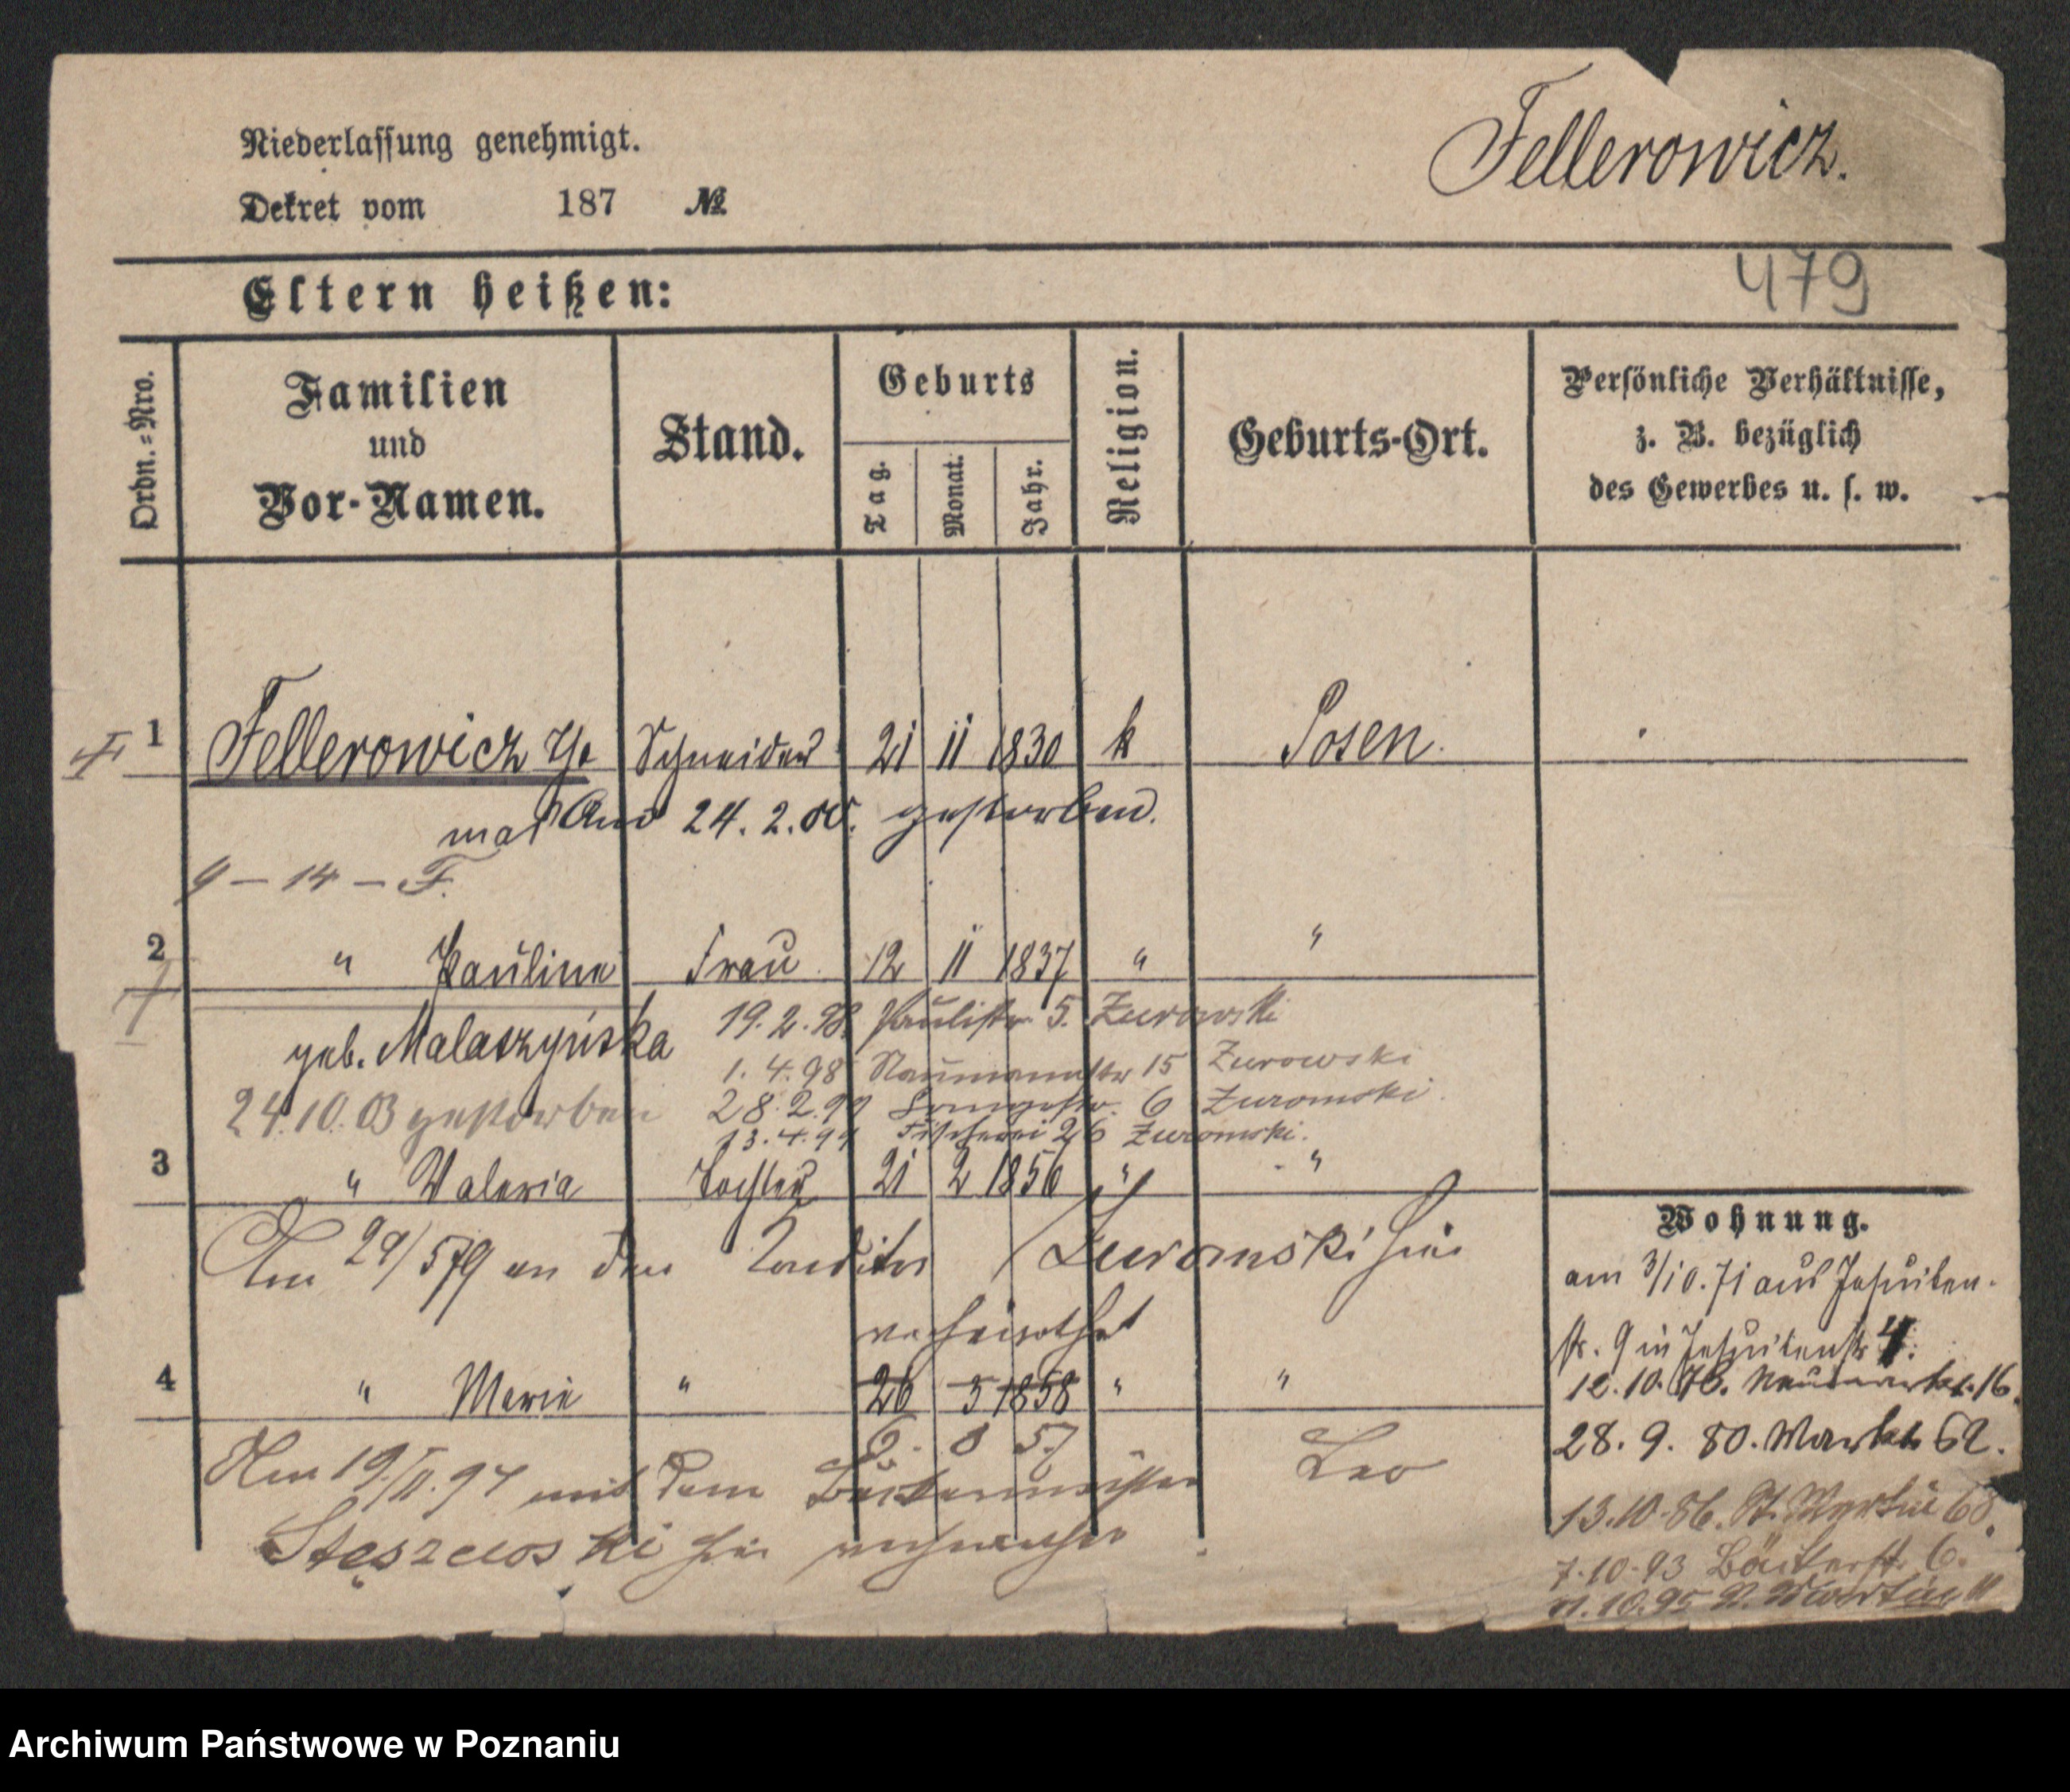 Niederlassung genehmigt.
Fellerowicz.
Dekret vom 187 №
479
Eltern heißen:
Ordn.-Nro.
Familien
und
Vor-Namen.
Stand.
Geburts
Tag.
Monat.
Jahr.
Religion.
Geburts-Ort.
Persönliche Verhältnisse,
z. B. bezüglich
des Gewerbes u. s. w.
1 Fellerowicz Tho Schneider 21 11 1830 k Posen.
mas Am 24. 2. 00. gestorben.
9 – 14 – F.
2 " Pauline Frau 12 11 1837 " "
geb. Malaszyńska 19. 2. 98. Paulistr. 5. Zurowski
1. 4. 98 Naumannstr 15 Zurowski
24.10.03 gestorben 28. 2. 99 Langestr. 6 Zuromski.
13. 4. 99 Fischerei 26 Zuromski.
3 " Valeria Tochter 21 2 1856 " "
Am 29/5 79 an den Konditor Zuromski hier
verheirathet
4 " Marie " 26 5 1858 " "
6. 8 57
Am 19/II. 97 mit dem Bäckermeister Leo
Stęszewski hier
Wohnung.
am 3/10. 71 aus Jesuiten-
str. 9 in Jesuitenstr 4.
12. 10. 76. Neuermarkt. 16.
28. 9. 80. Markt 62.
13. 10. 86. St. Martin 68.
7. 10. 93 Bäckerstr. 6.
11. 10. 95 St. Martin 11
Archiwum Państwowe w Poznaniu